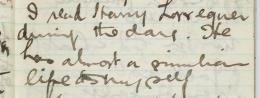 I read Harry Lorrequer
during the day. He
has almost a similar
life to my self